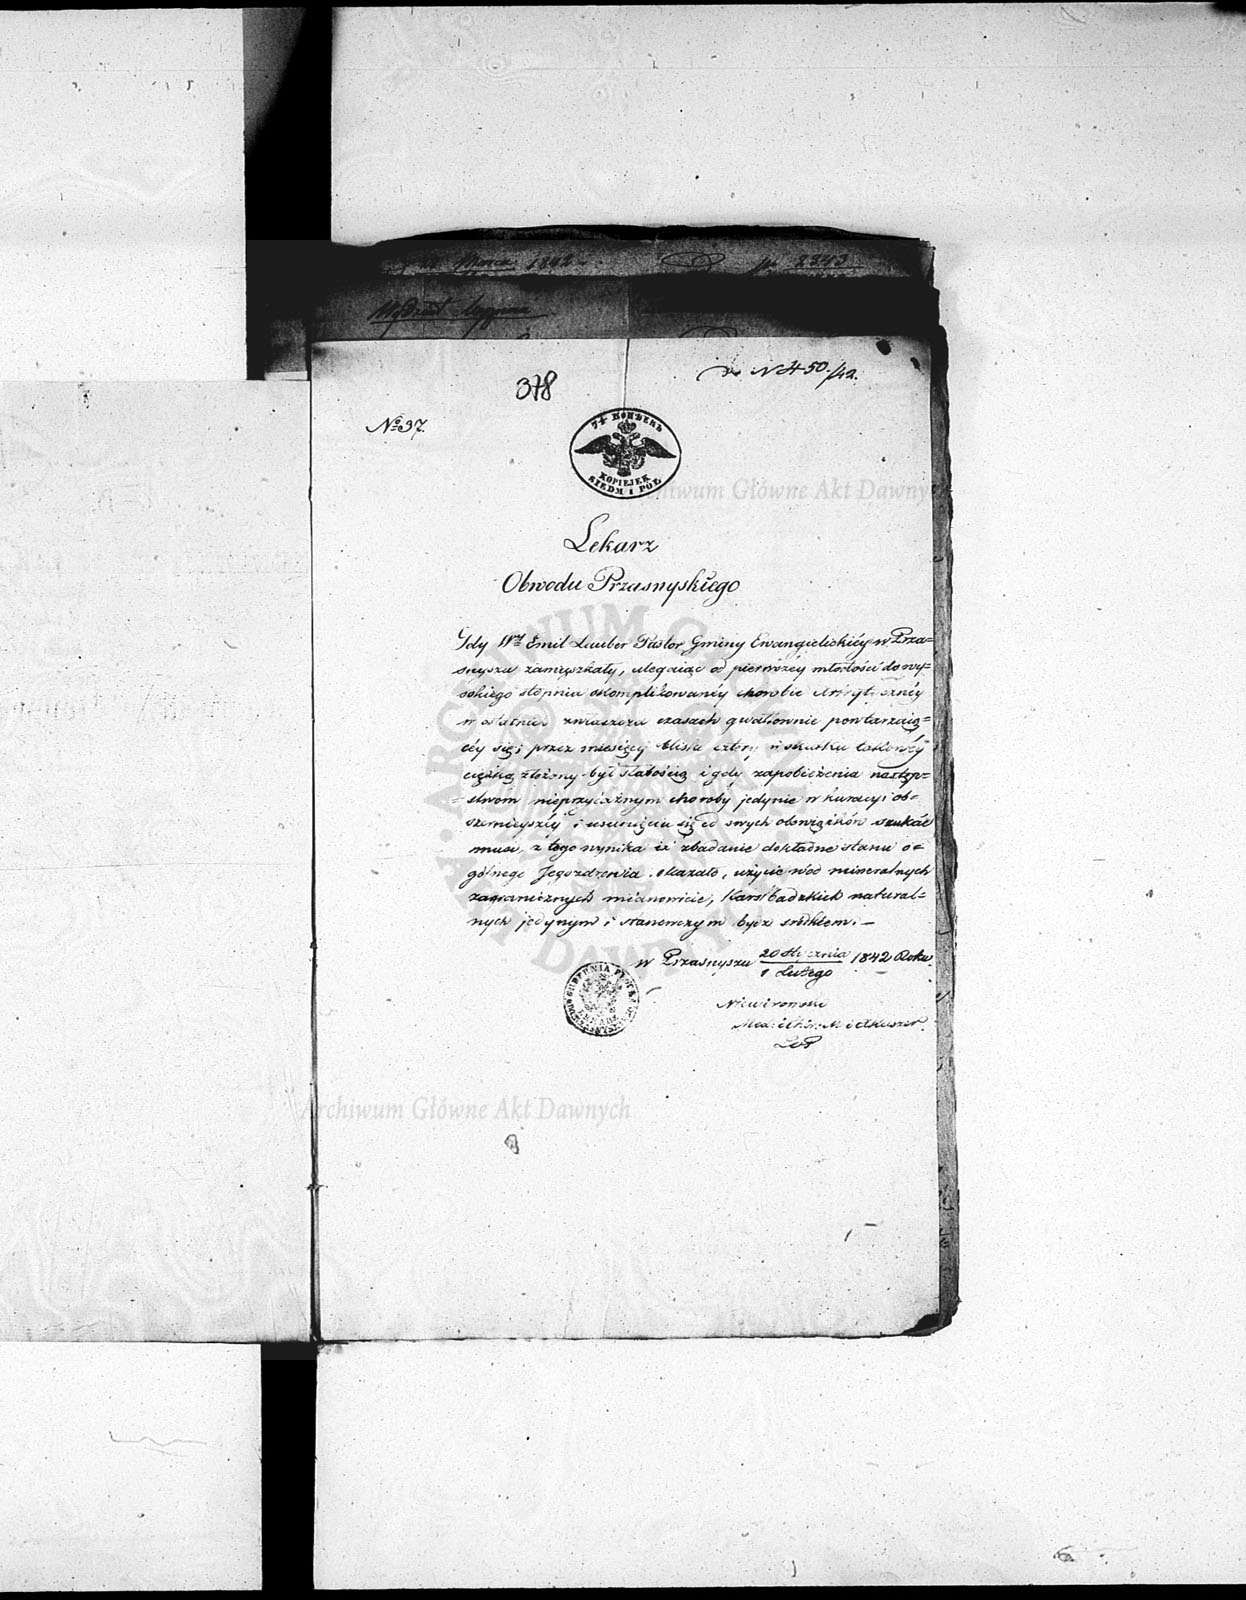 Marca 1842 2343
378
do N 450/42.
№ 37.
7½ КОПѢЕКЪ
KOPIEJEK
SIEDM I PÓŁ
Archiwum Główne Akt Dawnych
Lekarz
Obwodu Przasnyskiego
Gdy Wny Emil Lauber Pastor Gminy Ewangielickiéy w Prza=
snyszu zamięszkały, ulegaiąc od pierwszéy młodości do wy=
sokiego stopnia skomplikowanéy chorobie Artrytycznéy
w ostatnich zwłaszcza czasach gwałtownie powtarzaią=
céy się i przez miesięcy blisko cztery w skutku takowéy
ciężką złożony był słabością i gdy zapobieżenia następ=
=stwom nieprzyiaznym choroby jedynie w kuracyi ob=
szerniejszéy i usunięciu się od swych obowiązków szukać
musi, z tego wynika iż zbadanie dokładne stanu o=
gólnego Jego zdrowia okazało, użycie wód mineralnych
zagranicznych mianowicie, Karlsbadzkich natural=
nych jedynym i stanowczym bydź środkiem. —
w Przasnyszu 20 Stycznia / 1 Lutego 1842 Roku.
GUBERNIA
Med: i Chir: M i Akuszer.
Archiwum Główne Akt Dawnych